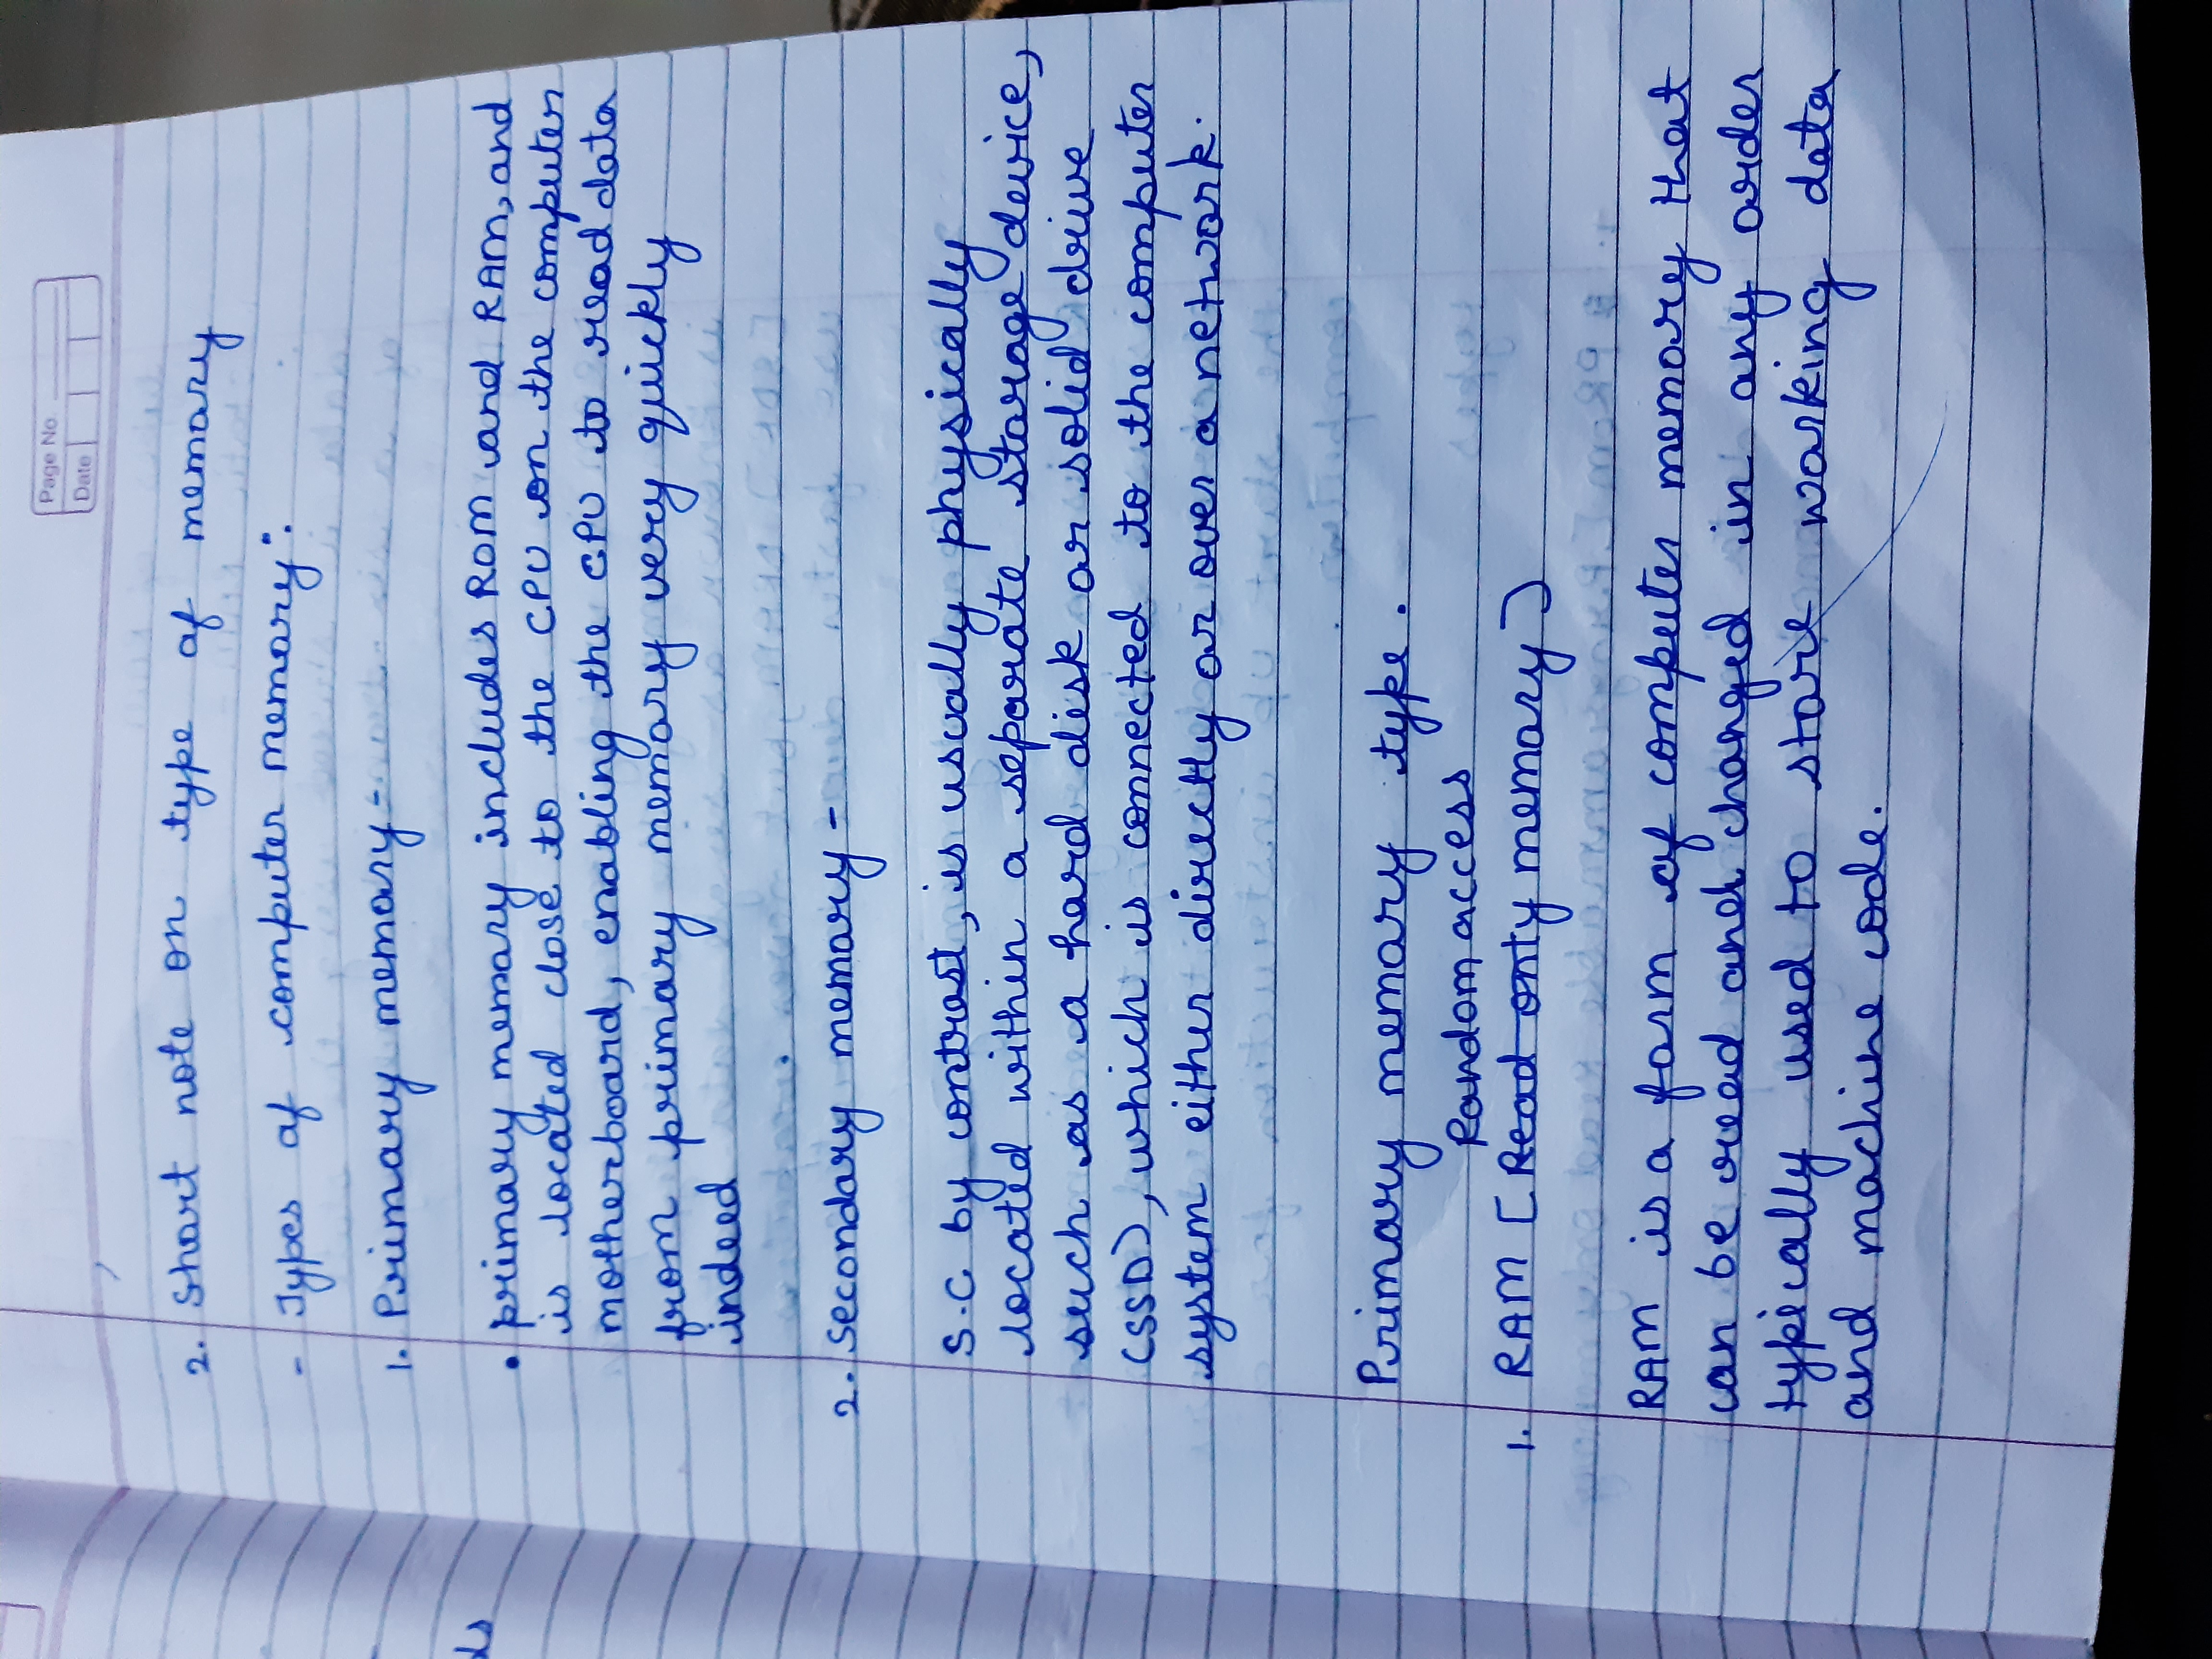 Page No.
Date
2. Short note on type of memory
- Types of computer memory:
1. Primary memory -
• primary memory includes ROM and RAM, and
is located close to the CPU on the computer
motherboard, enabling the CPU to read data
from primary memory very quickly
indeed
ds
2. Secondary memory -
S.C by contrast, is usually physically
located within a separate storage device,
such as a hard disk or solid drive
(SSD), which is connected to the computer
system either directly or over a network.
Primary memory type.
Random access
1. RAM [Read only memory]
RAM is a form of computer memory that
can be read and changed in any order
typically used to store working data
and machine code.